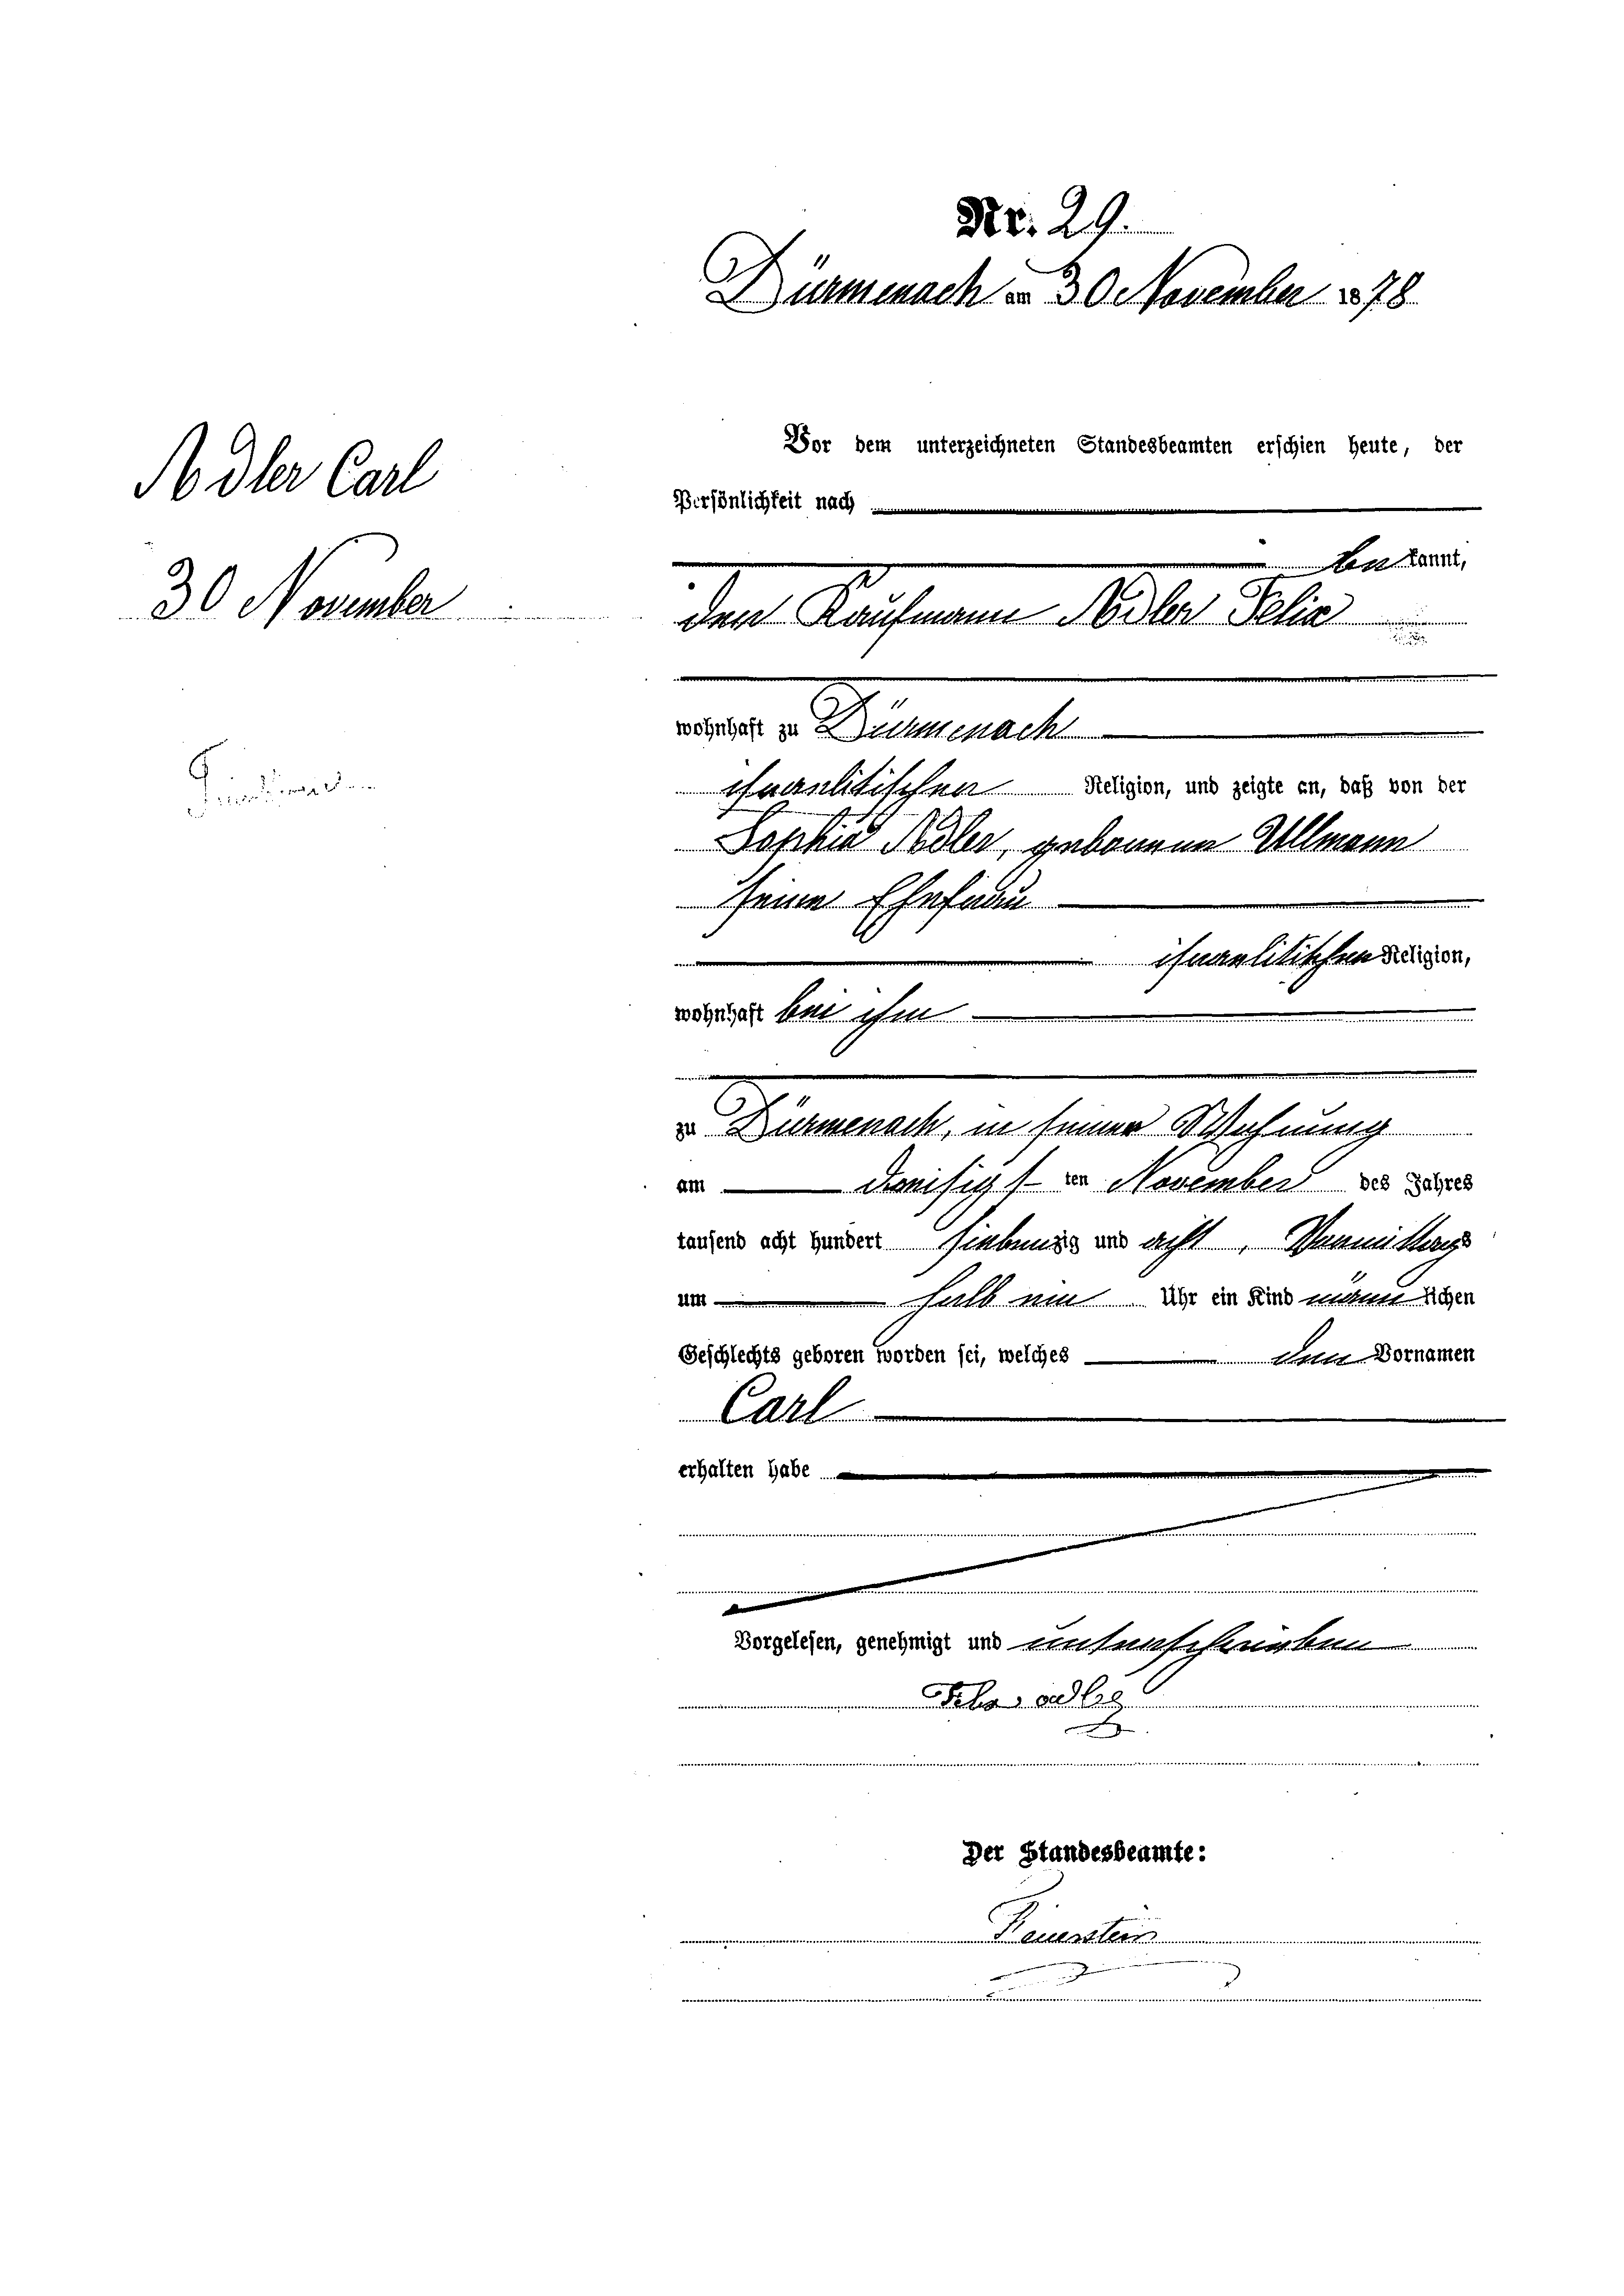 Nr. 29.
Dürmenach am 30 November 1878
Adler Carl
30 November
Vor dem unterzeichneten Standesbeamten erschien heute, der
Persönlichkeit nach
bekannt,
der Kaufmann Adler Felix
wohnhaft zu Dürmenach
israelitischer Religion, und zeigte an, daß von der
Sophie Adler, geborenen Ullmann
seine Ehefrau
israelitischer Religion,
wohnhaft bei ihm
zu Dürmenach, in seiner Wohnung
am dreisigsten November des Jahres
tausend acht hundert siebenzig und acht, Vormittags
um halb ein Uhr ein Kind männlichen
Geschlechts geboren worden sei, welches den Vornamen
Carl
erhalten habe
Vorgelesen, genehmigt und unterschrieben
adler
Der Standesbeamte:
Feuerstein